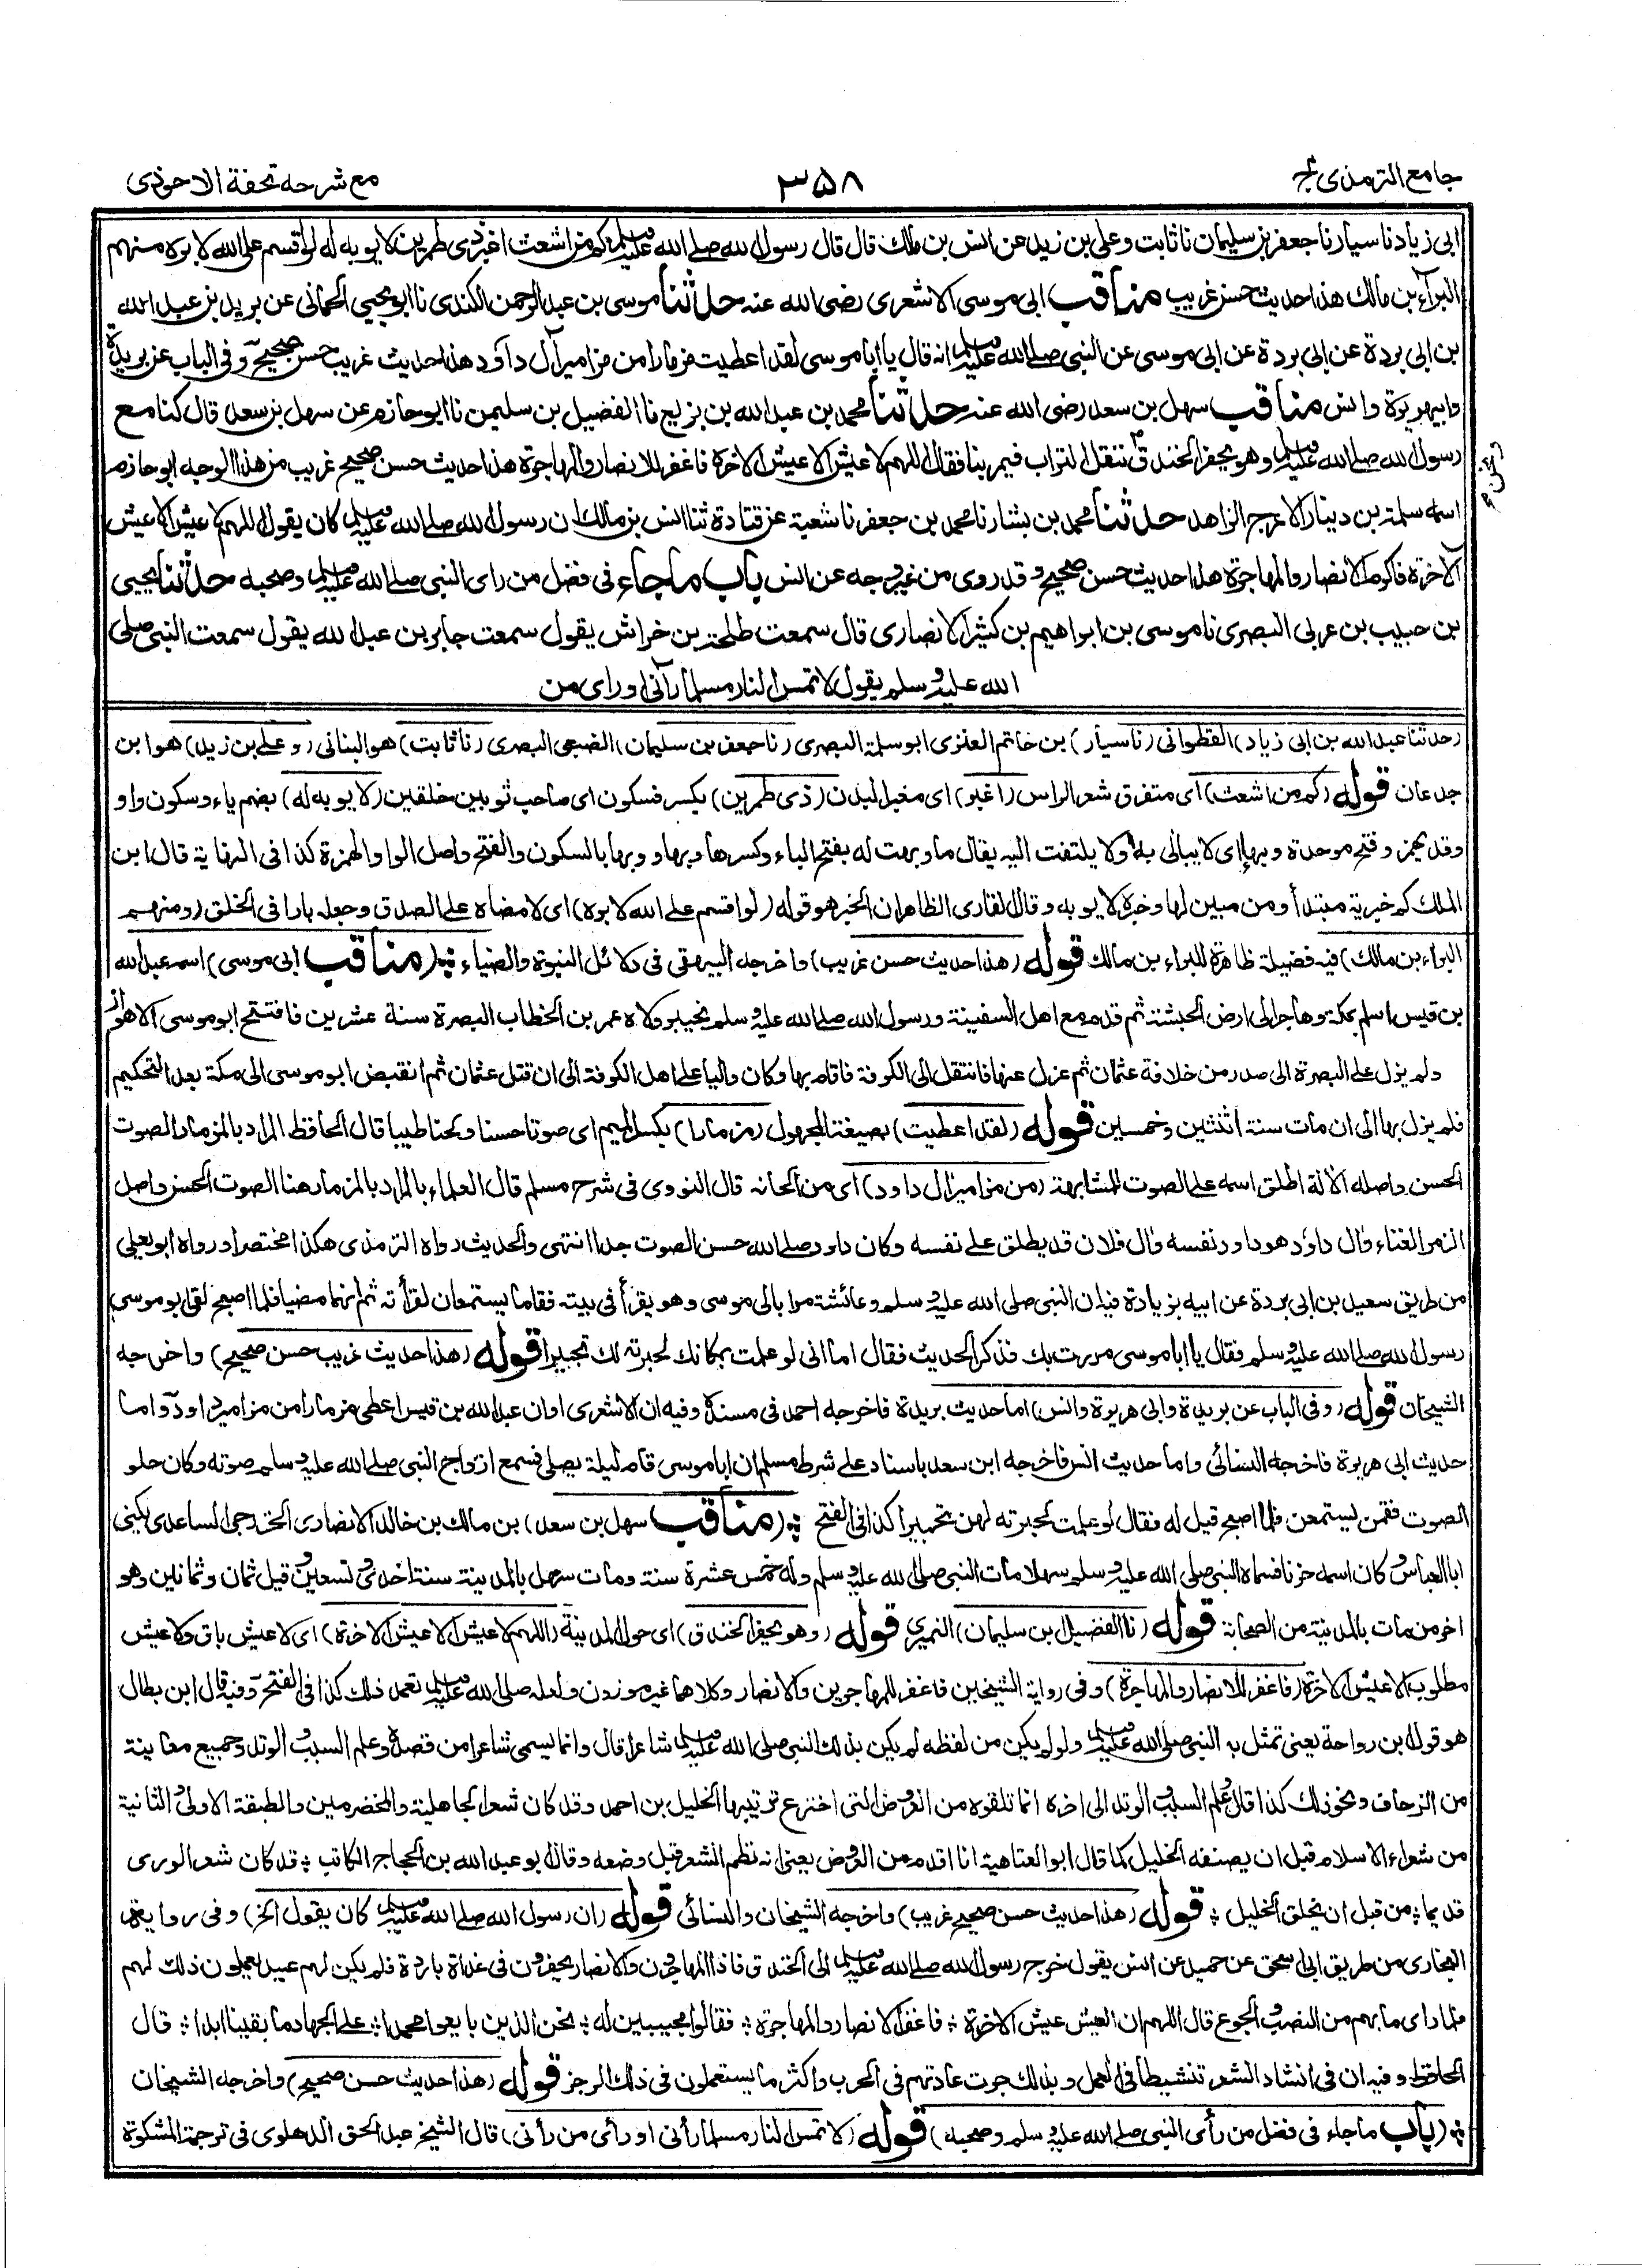 جامع الترمذی ج
۳۵۸
مع شرحه تحفة الاحوذی
ابی زیاد نا سیار نا جعفر بن سلیمان نا ثابت و علی بن زید عن انس بن مالك قال قال رسول الله صلے الله علیه وسلم كم من اشعث اغبر ذی طمرین لا یوبه له لو اقسم علی الله لابره منهم
البرآء بن مالك هذا حدیث حسن غریب مناقب ابی موسی الاشعری رضی الله عنه حدثنا موسی بن عبد الرحمن الكندی نا ابو یحیی الحمانی عن برید بن عبد الله
بن ابی بردة عن ابی بردة عن ابی موسی عن النبی صلے الله علیه وسلم انه قال یا ابا موسی لقد اعطیت مزمارا من مزامیر آل داؤد هذا حدیث غریب حسن صحیح وفی الباب عن بریدة
وابی هریرة وانس مناقب سهل بن سعد رضی الله عنه حدثنا محمد بن عبد الله بن بزیع نا الفضیل بن سلیمن نا ابو حازم عن سهل بن سعد قال كنا مع
رسول الله صلے الله علیه وسلم وهو یحفر الخندق ننقل التراب فیمر بنا فقال اللهم لا عیش الا عیش الاخرة فاغفر للانصار والمهاجرة هذا حدیث حسن صحیح غریب من هذا الوجه ابو حازم
اسمه سلمة بن دینار الاعرج الزاهد حدثنا محمد بن بشار نا محمد بن جعفر نا شعبة عن قتادة ثنا انس بن مالك ان رسول الله صلے الله علیه وسلم كان یقول اللهم لا عیش الا عیش
الآخرة فاكرم الانصار والمهاجرة هذا حدیث حسن صحیح وقد روی من غیر وجه عن انس باب ما جاء فی فضل من رای النبی صلے الله علیه وسلم وصحبه حدثنا یحیی
بن حبیب بن عربی البصری نا موسی بن ابراهیم بن كثیر الانصاری قال سمعت طلحة بن خراش یقول سمعت جابر بن عبد الله یقول سمعت النبی صلی
الله علیه وسلم یقول لا تمس النار مسلما رآنی او رای من
(حدثنا عبد الله بن ابی زیاد) القطوانی (نا سیار) بن حاتم العنزی ابو سلمة البصری (نا جعفر بن سلیمان) الضبعی البصری (نا ثابت) هو البنانی (و علے بن زید) هو ابن
جدعان قوله (كم من اشعث) ای متفرق شعر الراس (اغبر) ای مغبر البدن (ذی طمرین) بكسر فسكون ای صاحب ثوبین خلقین (لا یوبه له) بضم یاء وسكون واو
وقد یهمز وفتح موحدة وبهاء ای لا یبالی به ولا یلتفت الیه یقال ما وبهت له بفتح الباء وكسرها وبها و وبها بالسكون والفتح واصل الواو الهمزة كذا فی النهایة قال ابن
الملك كم خبریة مبتدأ ومن مبین لها وخبره لا یوبه وقال القاری الظاهر ان الخبر هو قوله (لو اقسم علے الله لابره) ای لامضاه علے الصدق وجعله بارا فی الخلق (ومنهم
البراء بن مالك) فیه فضیلة ظاهرة للبراء بن مالك قوله (هذا حدیث حسن غریب) واخرجه البیهقی فی دلائل النبوة والضیاء (مناقب ابی موسی) اسمه عبد الله
بن قیس اسلم بمكة وهاجر الی ارض الحبشة ثم قدم مع اهل السفینة ورسول الله صلے الله علیه وسلم بخیبر ولاه عمر بن الخطاب البصرة سنة عشرین فافتتح ابو موسی الاهواز
ولم یزل علے البصرة الی صدر من خلافة عثمان ثم عزل عنها فانتقل الی الكوفة فاقام بها وكان والیا علے اهل الكوفة الی ان قتل عثمان ثم انقبض ابو موسی الی مكة بعد التحكیم
فلم یزل بها الی ان مات سنة اثنتین وخمسین قوله (لقد اعطیت) بصیغة المجهول (مزمارا) بكسر المیم ای صوتا حسنا ولحنا طیبا قال الحافظ المراد بالمزمار الصوت
الحسن واصله الالة اطلق اسمه علے الصوت للمشابهة (من مزامیر ال داود) ای من الحانه قال النووی فی شرح مسلم قال العلماء بالمراد بالمزمار هنا الصوت الحسن واصل
الزمر الغناء وال داؤد هو داود نفسه وال فلان قد یطلق علے نفسه وكان داود صلے الله حسن الصوت جدا انتهی والحدیث رواه الترمذی هكذا مختصرا ورواه ابو یعلی
من طریق سعید بن ابی بردة عن ابیه بزیادة فیه ان النبی صلی الله علیه وسلم وعائشة مرا بابی موسی وهو یقرأ فی بیته فقاما یستمعان لقرأته ثم انهما مضیا فلما اصبح لقی ابو موسی
رسول الله صلے الله علیه وسلم فقال یا ابا موسی مررت بك فذكر الحدیث فقال اما انی لو علمت بمكانك لحبرته لك تحبیرا قوله (هذا حدیث غریب حسن صحیح) واخرجه
الشیخان قوله (وفی الباب عن بریدة وابی هریرة وانس) اما حدیث بریدة فاخرجه احمد فی مسنده وفیه ان الاشعری او ان عبد الله بن قیس اعطی مزمارا من مزامیر داود واما
حدیث ابی هریرة فاخرجه النسائی واما حدیث انس فاخرجه ابن سعد باسناد علے شرط مسلم ان ابا موسی قام لیلة یصلی فسمع ازواج النبی صلے الله علیه وسلم صوته وكان حلو
الصوت فقمن یستمعن فلما اصبح قیل له فقال لو علمت لحبرته لهن تحبیرا كذا فی الفتح (مناقب سهل بن سعد) بن مالك بن خالد الانصاری الخزرجی الساعدی یكنی
ابا العباس وكان اسمه حزنا فسماه النبی صلی الله علیه وسلم سهلا مات النبی صلی الله علیه وسلم وله خمس عشرة سنة ومات سهل بالمدینة سنة احدی وتسعین وقیل ثمان وثمانین وهو
اخر من مات بالمدینة من الصحابة قوله (نا الفضیل بن سلیمان) النمیری قوله (وهو یحفر الخندق) ای حول المدینة (اللهم لا عیش الا عیش الاخرة) ای لا عیش باق ولا عیش
مطلوب الا عیش الاخرة (فاغفر للانصار والمهاجرة) وفی روایة الشیخین فاغفر للمهاجرین والانصار وكلاهما غیر موزون ولعله صلی الله علیه وسلم تعمد ذلك كذا فی الفتح وفیه قال ابن بطال
هو قول ابن رواحة یعنی تمثل به النبی صلی الله علیه وسلم ولو لم یكن من لفظه لم یكن بذلك النبی صلی الله علیه وسلم شاعرا قال وانما یسمی شاعرا من قصده وعلم السبب والوتد وجمیع معانیه
من الزحاف ونحو ذلك كذا قال وعلم السبب والوتد الی اخره انما تلقوه من العروض التی اخترع ترتیبها الخلیل بن احمد وقد كان شعر الجاهلیة والمخضرمین والطبقة الاولی والثانیة
من شعراء الاسلام قبل ان یصنفه الخلیل كما قال ابو العتاهیة انا اقدم من العروض یعنی انه نظم الشعر قبل وضعه وقال ابو عبد الله بن الحجاج الكاتب قد كان شعر الوری
قدیما من قبل ان یخلق الخلیل قوله (هذا حدیث حسن صحیح غریب) واخرجه الشیخان والنسائی قوله (ان رسول الله صلے الله علیه وسلم كان یقول الخ) وفی روایة
البخاری من طریق ابی اسحق عن حمید عن انس یقول خرج رسول الله صلے الله علیه وسلم الی الخندق فاذا المهاجرون والانصار یحفرون فی غداة باردة فلم یكن لهم عبید یعملون ذلك لهم
فلما رای ما بهم من النصب والجوع قال اللهم ان العیش عیش الاخرة فاغفر الانصار والمهاجرة فقالوا مجیبین له نحن الذین بایعوا محمدا علے الجهاد ما بقینا ابدا قال
الحافظ وفیه ان فی انشاد الشعر تنشیطا فی العمل وبذلك جرت عادتهم فی الحرب واكثر ما یستعملون فی ذلك الرجز قوله (هذا حدیث حسن صحیح) واخرجه الشیخان
(باب ما جاء فی فضل من رأی النبی صلے الله علیه وسلم وصحبه) قوله (لا تمس النار مسلما رأنی او رأی من رأنی) قال الشیخ عبد الحق الدهلوی فی ترجمة المشكوة